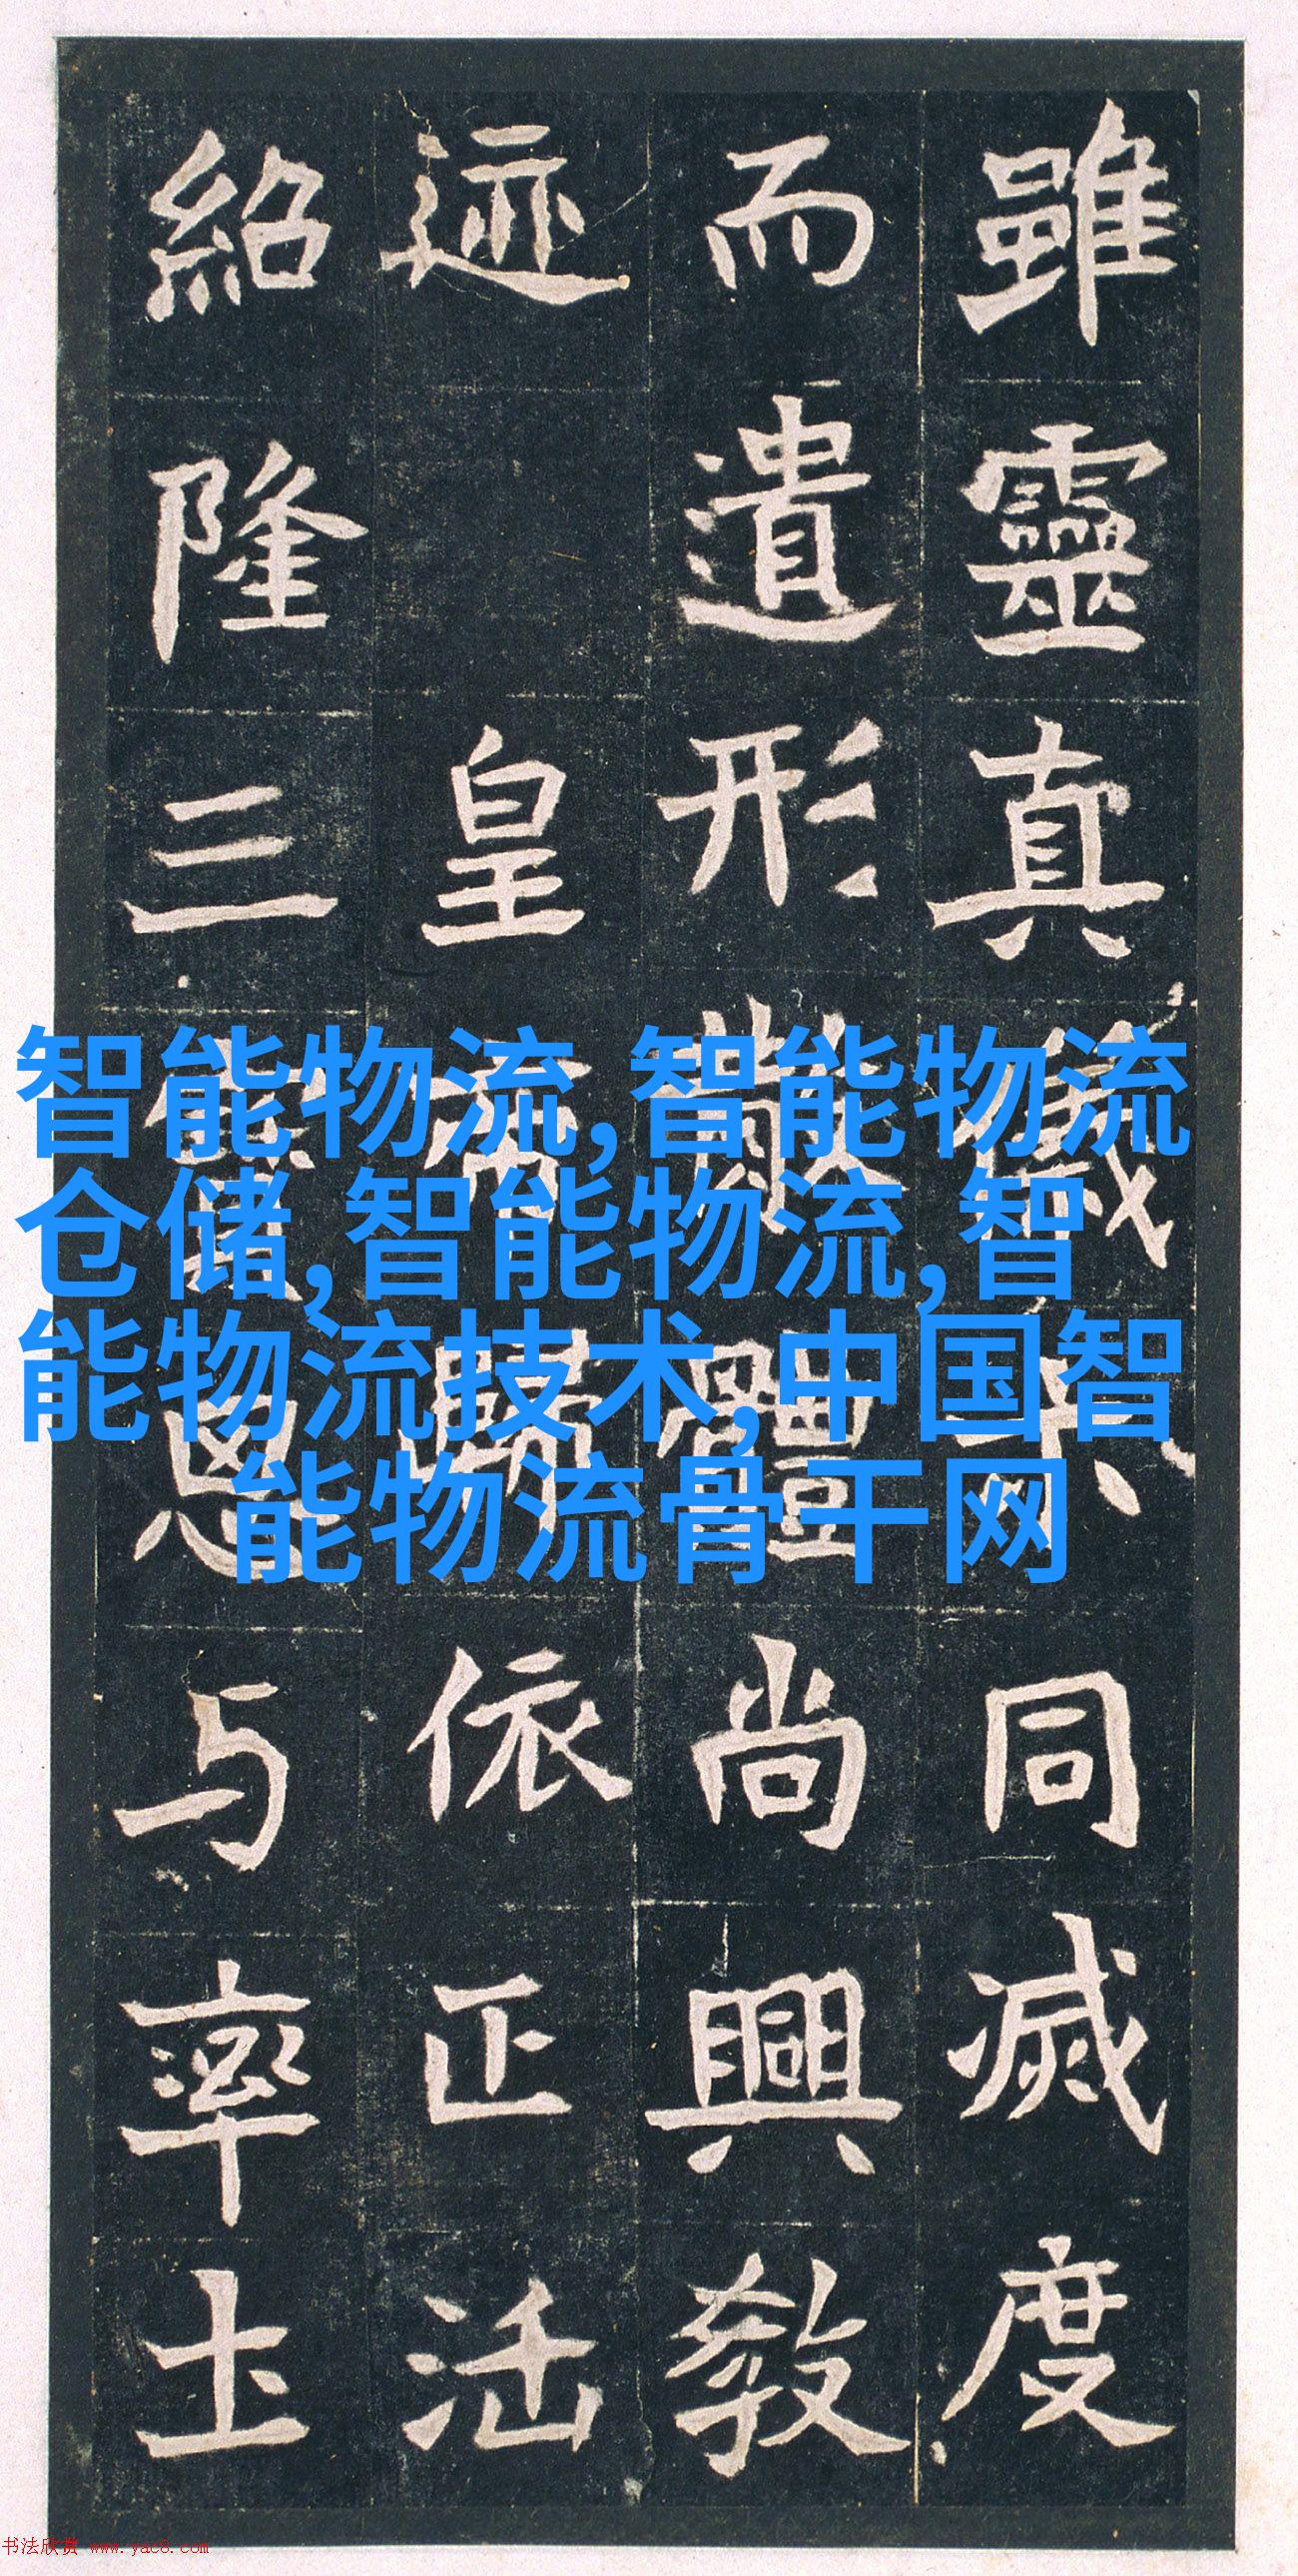 雖靈真儀同滅度
而遺形儼體尚興教
迹皇帝歸依正法
紹隆三寶思与率土
智能物流,智能物流
仓储,智能物流,智
能物流技术,中国智
能物流骨干网
书法欣赏 www.yac8.com